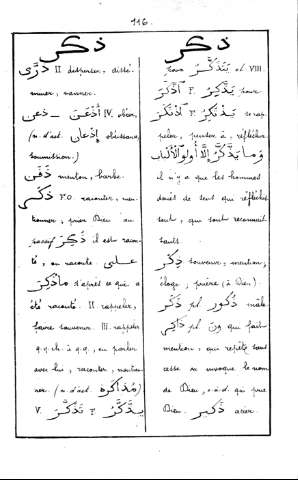 116.
ذكر
ذَرَّى II disperser, dissé-
miner, vanner.
أَذْعَنَ - ذعن IV. obéir,
(n. d'act. إِذْعَان obéissance,
soumission.)
ذَقَن menton, barbe.
ذَكَرَ F.O raconter, men-
tionner, prier Dieu au
passif ذُكِرَ il est racon-
té, on raconte على
ما ذُكِرَ d'après ce qui a
été raconté. II rappeler,
faire souvenir. III. rappeler
q.q.ch. à q.q., ou parler
avec lui, raconter, mention-
ner (n. d'act. مُذَاكَرة)
V. تَذَكَّرَ F. يَذَّكَّرُ
ذكر
pour يَتَذَكَّرُ et VIII.
اِذَّكَرَ F. يَذَّكِرُ pour
اِذْتَكَرَ F. يَذْتَكِرُ se rap-
peler, penser à, réfléchir
وَمَا يَذَّكَّرُ إِلَّا أُولُو الْأَلْبَاب
il n'y a que les hommes
doués de sens qui réfléchis-
sent, qui sont reconnais-
sants.
ذِكْر souvenir, mention,
éloge, prière (à Dieu).
ذَكَر pl. ذُكُور mâle
ذَاكِر pl. ون qui fait
mention, qui répète sans
cesse ou invoque le nom
de Dieu, c.à.d. qui prie
Dieu.